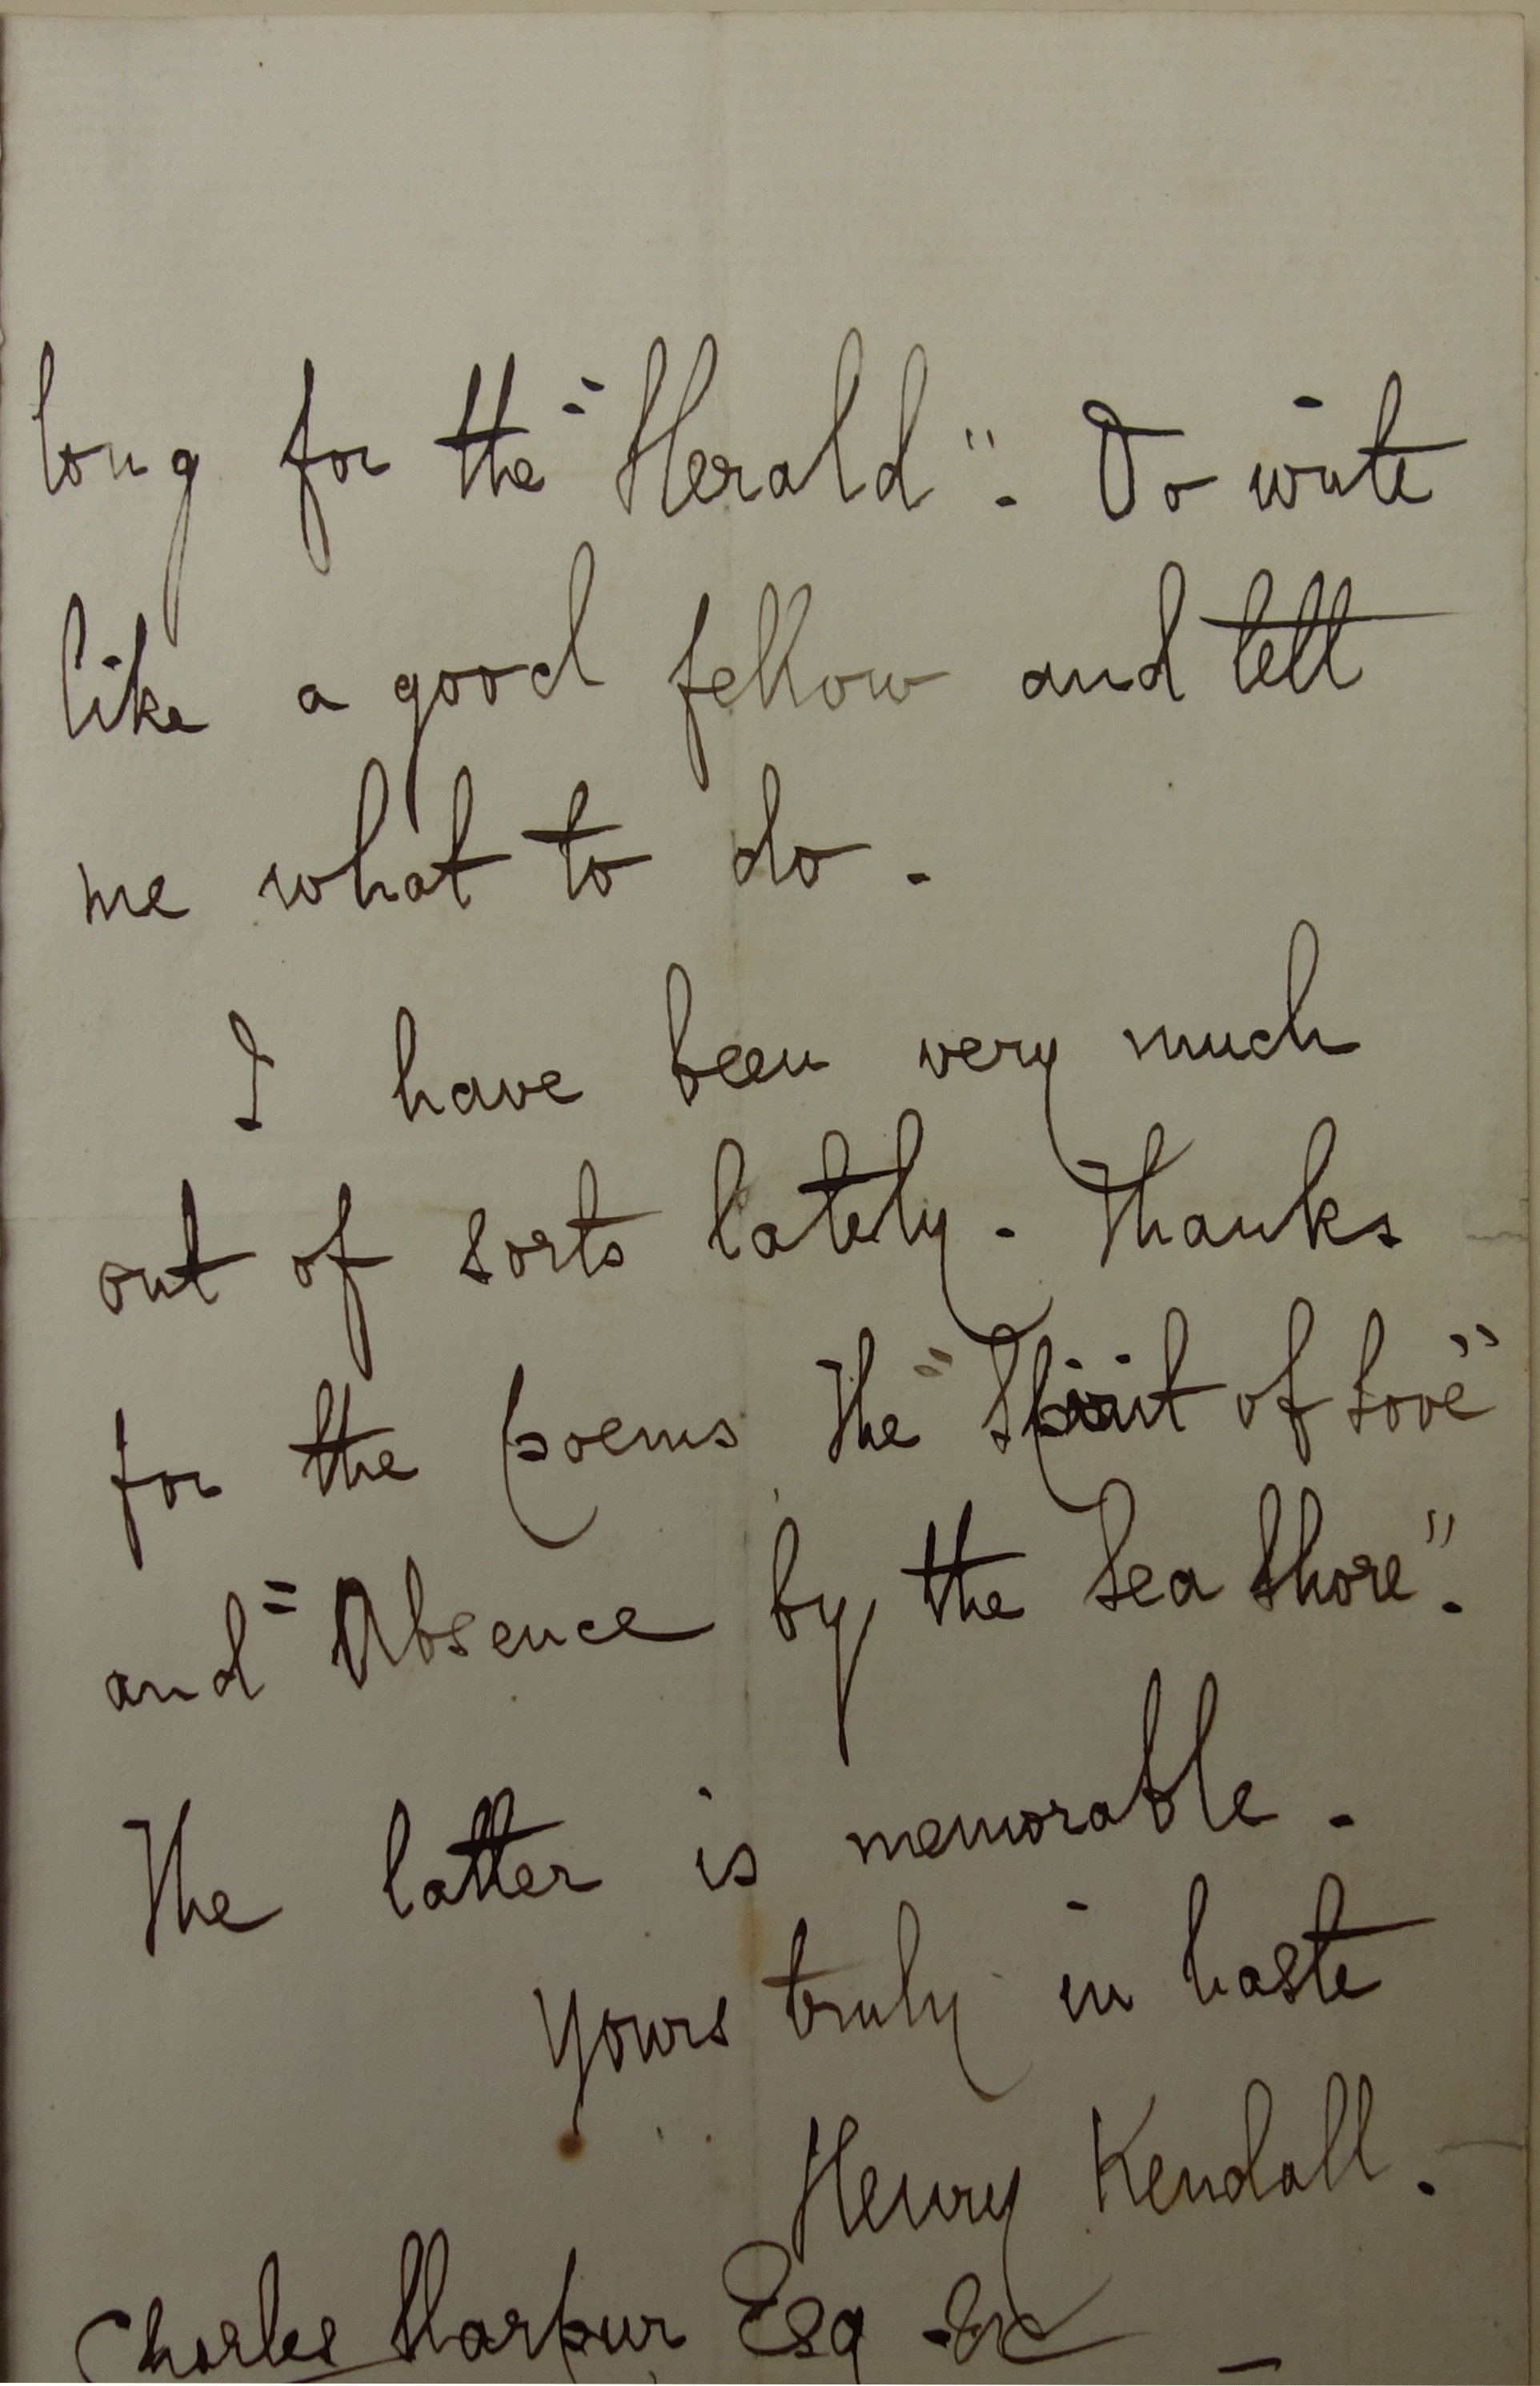 long for the "Herald". Do write
like a good fellow and tell
me what to do.
I have been very much
out of sorts lately. Thanks
for the poems the "Spirit of Love"
and "Absence by the Sea Shore".
The latter is memorable.
Yours truly in haste
Henry Kendall.
Charles Harpur Esq &c